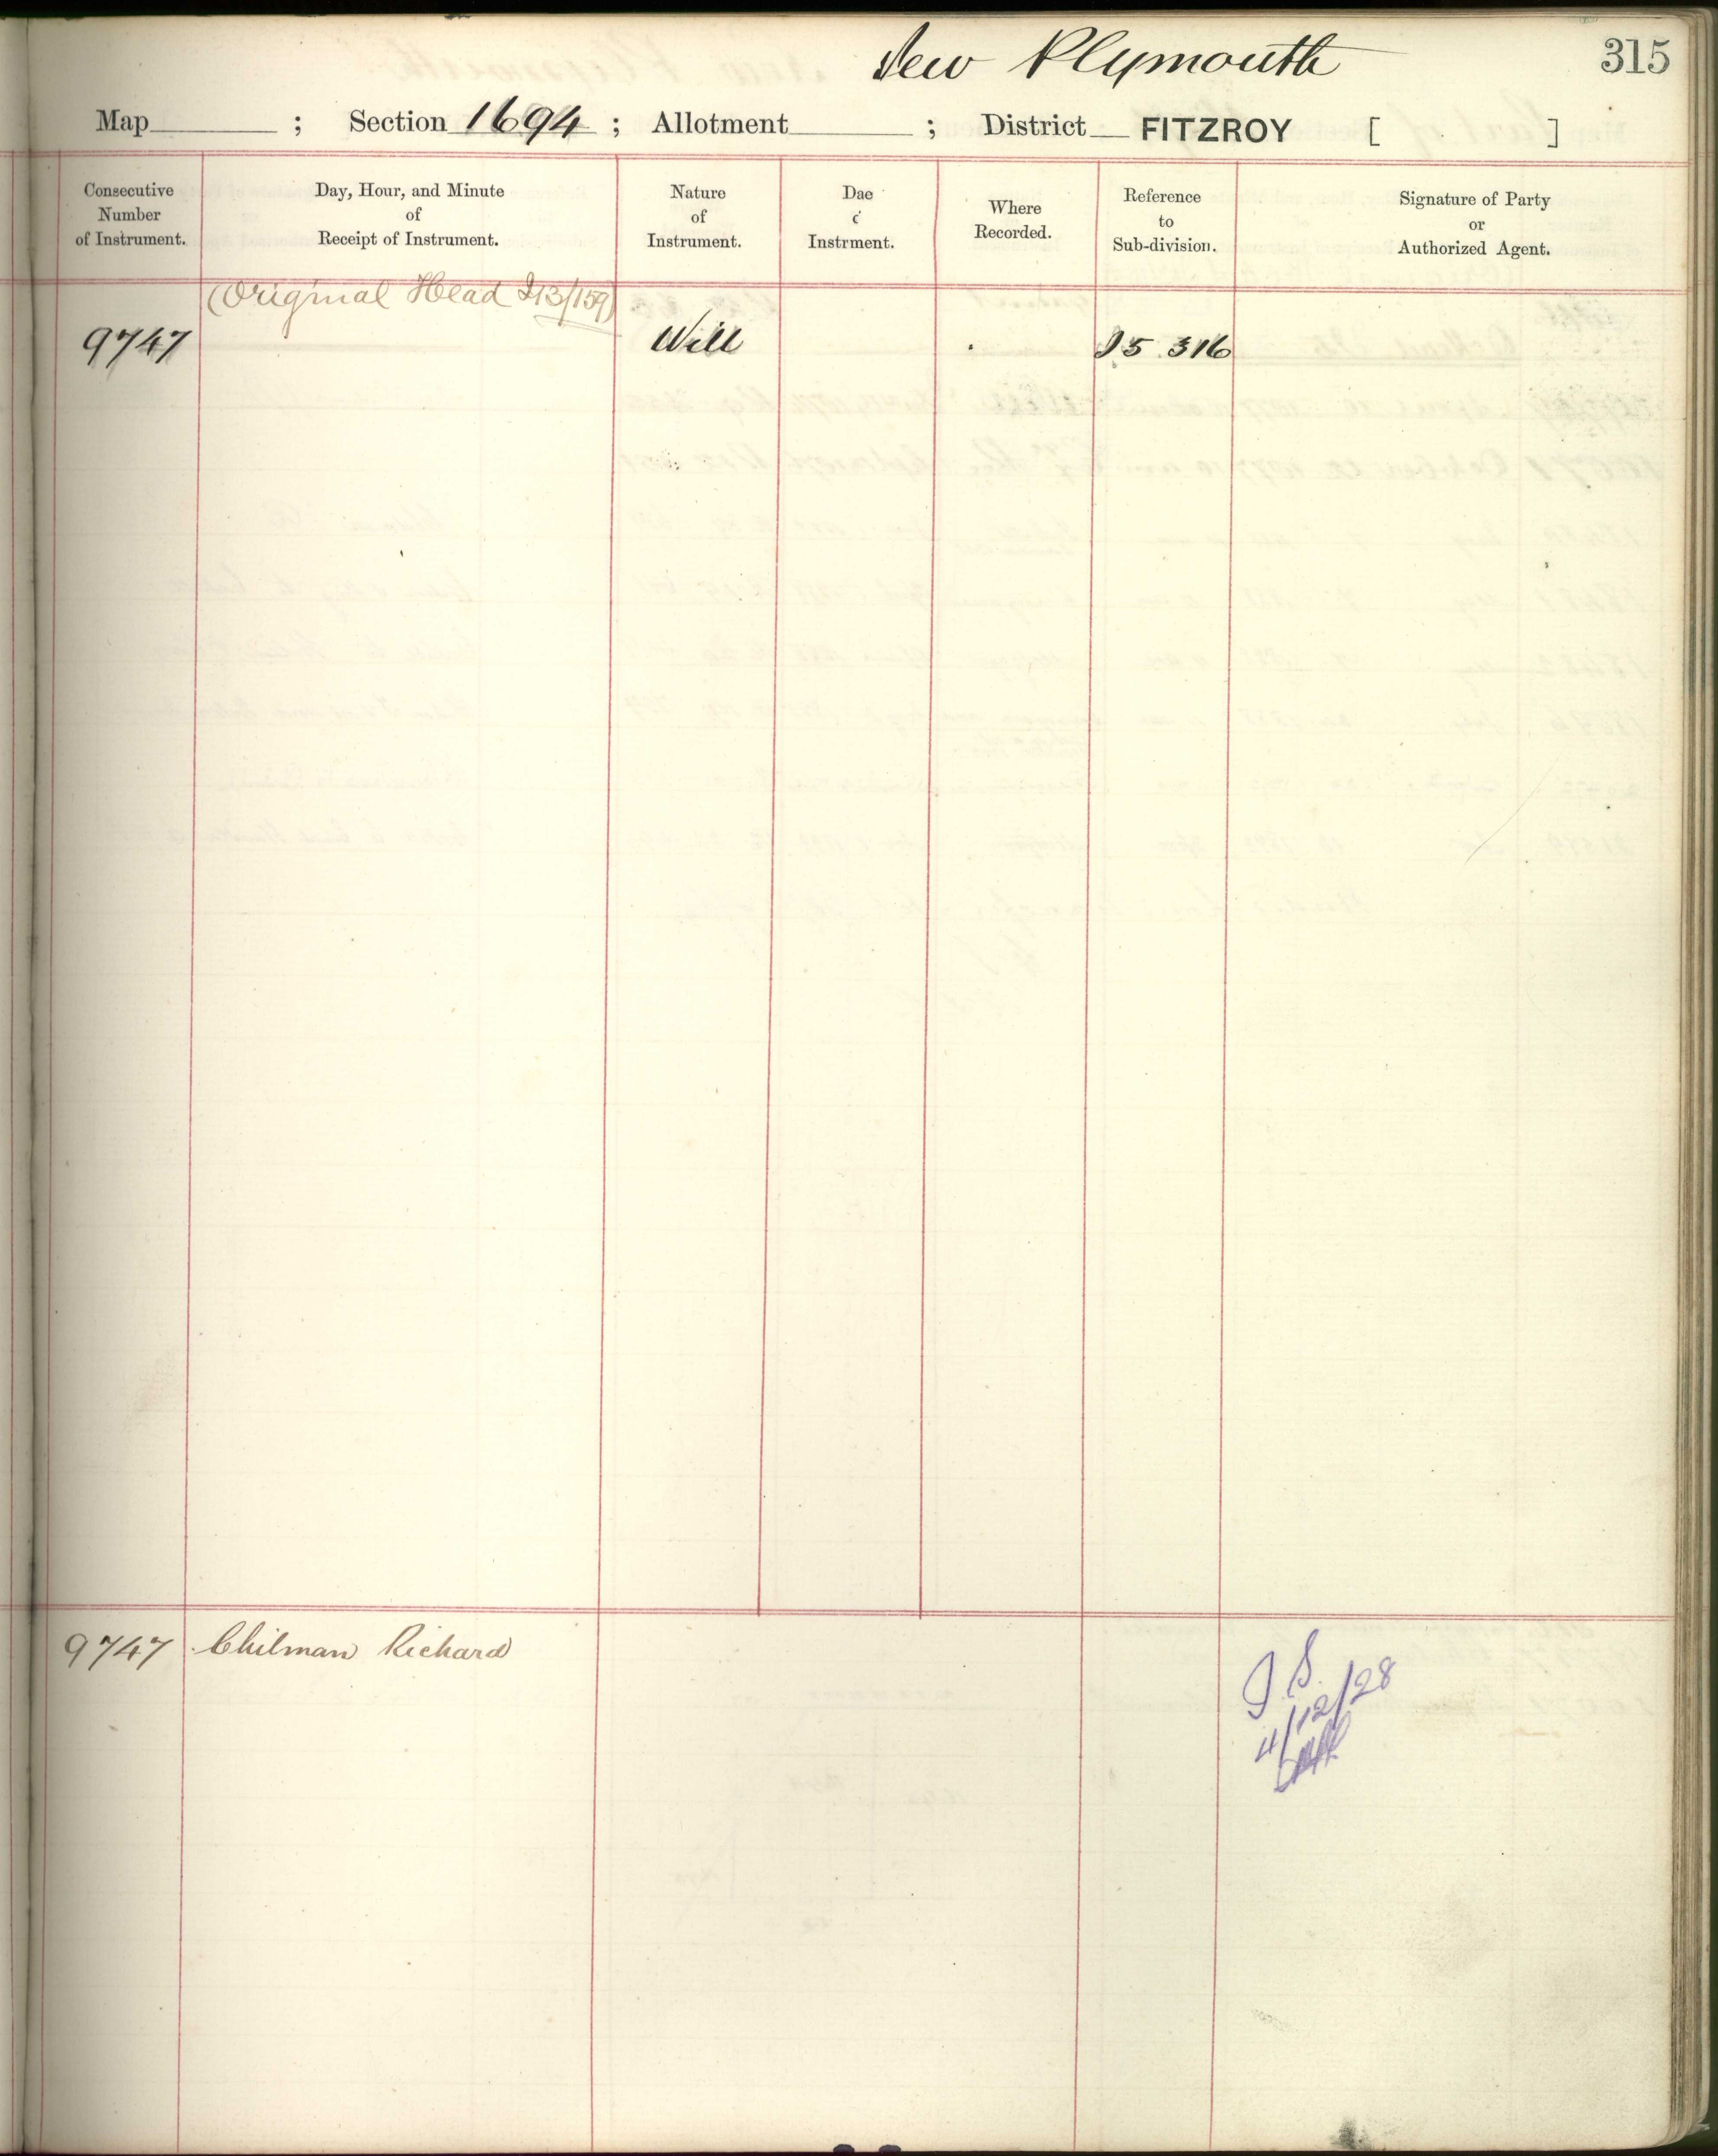 New Plymouth
315
Map ; Section 1694 ; Allotment ; District FITZROY [ ]
Consecutive Number of Instrument.
Day, Hour, and Minute of Receipt of Instrument.
Nature of Instrument.
Dae c Instrment.
Where Recorded.
Reference to Sub-division.
Signature of Party or Authorized Agent.
(Original Head I13/159)
9747 Will I5 316
9747 Chilman Richard
J.S.
4/12/28